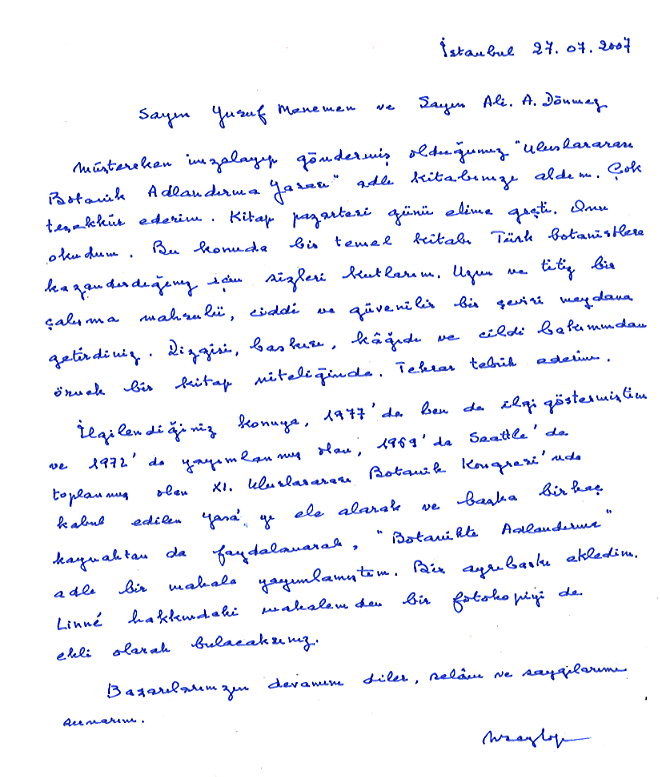 İstanbul 27.07.2007
Sayın Yusuf Menemen ve Sayın Ali. A. Dönmez
Müştereken imzalayıp göndermiş olduğunuz "Uluslararası
Botanik Adlandırma Yasası" adlı kitabınızı aldım. Çok
teşekkür ederim. Kitap pazartesi günü elime geçti. Onu
okudum. Bu konuda bir temel kitabı Türk botanistlere
kazandırdığınız için sizleri kutlarım. Uzun ve titiz bir
çalışma mahsulü, ciddi ve güvenilir bir çeviri meydana
getirdiniz. Dizgisi, baskısı, kâğıdı ve cildi bakımından
örnek bir kitap niteliğinde. Tekrar tebrik ederim.
İlgilendiğiniz konuya, 1977'de ben de ilgi göstermiştim
ve 1972'de yayımlanmış olan, 1969'da Seattle'da
toplanmış olan XI. Uluslararası Botanik Kongresi'nde
kabul edilen yasa'yı ele alarak ve başka birkaç
kaynaktan da faydalanarak, "Botanikte Adlandırma"
adlı bir makale yayımlamıştım. Bir ayrıbaskı ekledim.
Linné hakkındaki makalemden bir fotokopiyi de
ekli olarak bulacaksınız.
Başarılarınızın devamını diler, selâm ve saygılarımı
sunarım.